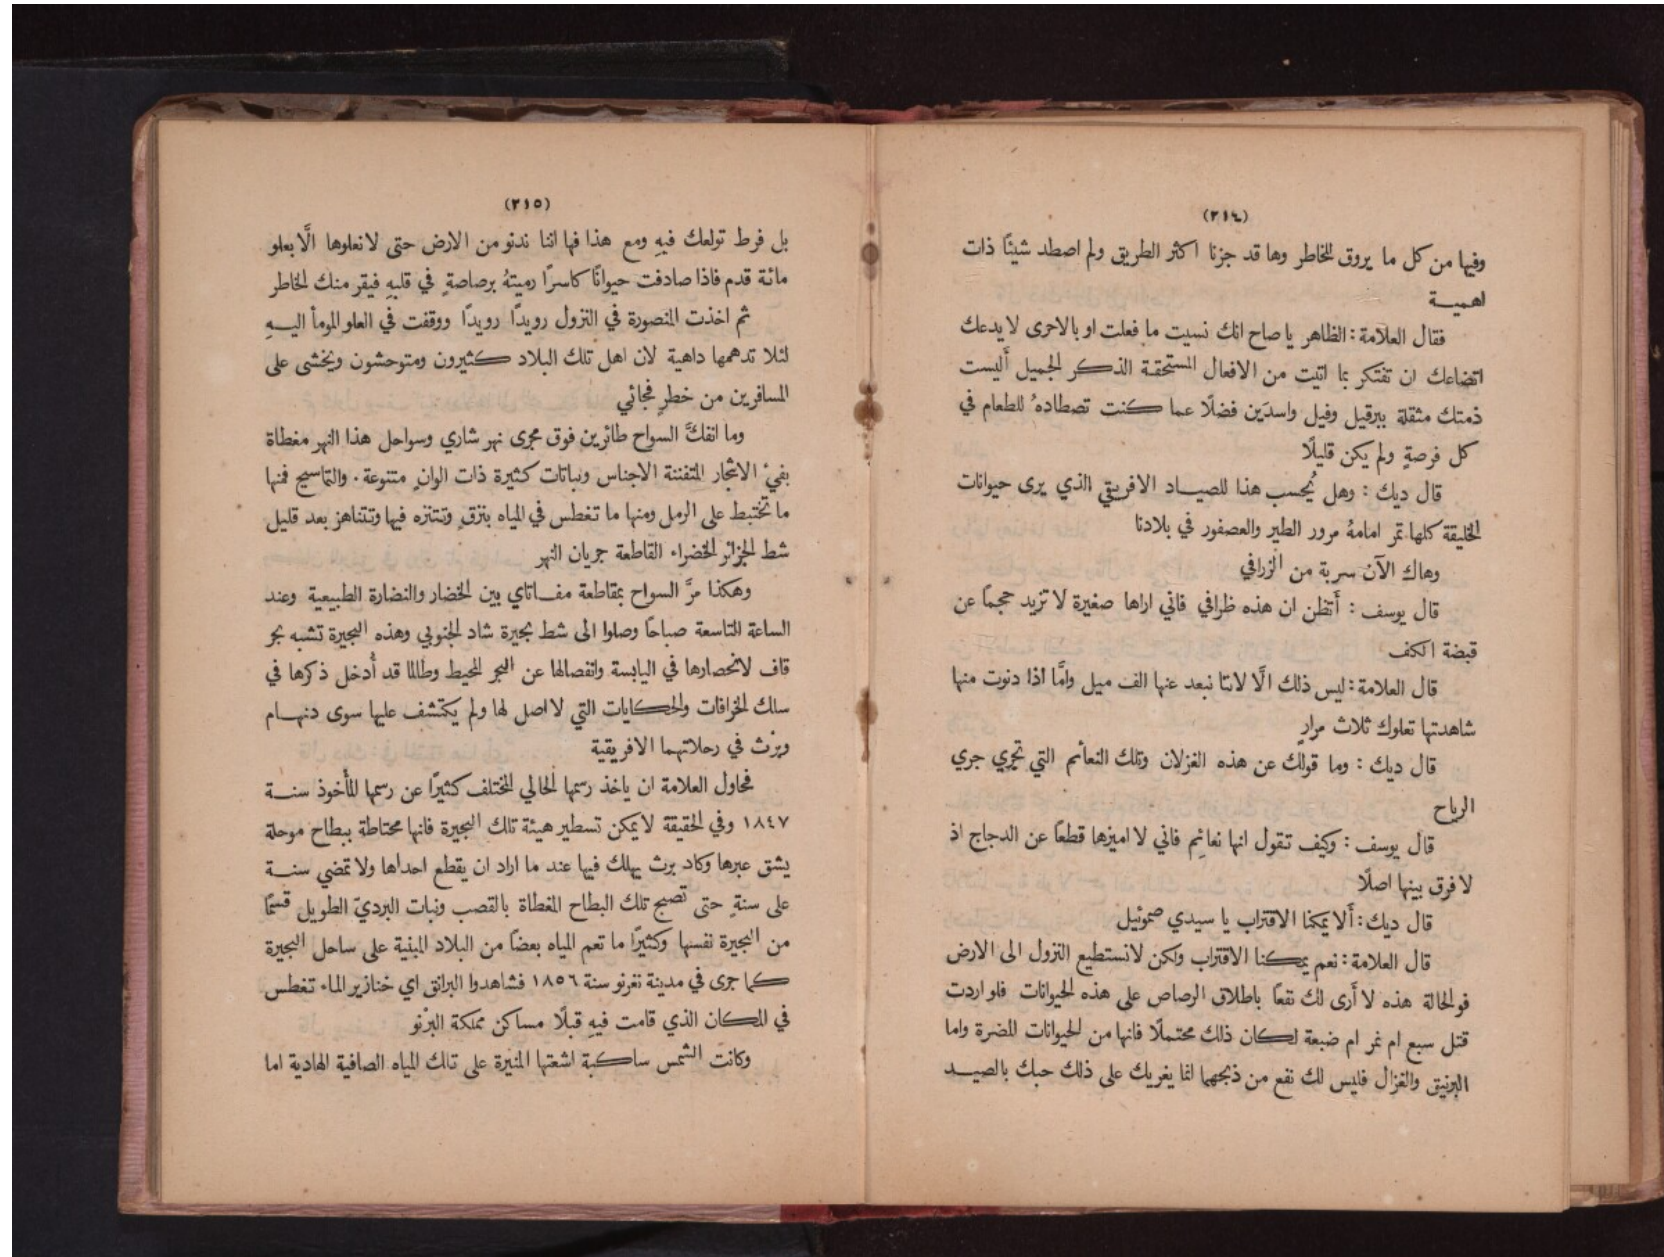 (٢١٤)
وفيها من كل ما يروق للخاطر وها قد جزنا اكثر الطريق ولم اصطد شيئًا ذات
اهمية
فقال العلامة: الظاهر يا صاح انك نسيت ما فعلت او بالاحرى لا يدعك
اتضاعك ان تفتكر بما اتيت من الافعال المستحقة الذكر الجميل أليست
ذمتك مثقلة ببرقيل وفيل واسدَين فضلًا عما كنت تصطادهُ للطعام في
كل فرصةٍ ولم يكن قليلًا
قال ديك: وهل يُحسب هذا للصياد الافريقي الذي يرى حيوانات
الخليقة كلها تمر امامهُ مرور الطير والعصفور في بلادنا
وهاك الآن سربة من الزرافي
قال يوسف: أتظن ان هذه ظرافي فاني اراها صغيرة لا تزيد حجمًا عن
قبضة الكف
قال العلامة: ليس ذلك الَّا لاننا نبعد عنها الف ميل وامَّا اذا دنوت منها
شاهدتها تعلوك ثلاث مرارٍ
قال ديك: وما قولك عن هذه الغزلان وتلك النعائم التي تجري جري
الرياح
قال يوسف: وكيف تقول انها نعائِم فاني لا اميزها قطعًا عن الدجاج اذ
لا فرق بينها اصلًا
قال ديك: أَلا يمكنا الاقتراب يا سيدي صموئيل
قال العلامة: نعم يمكننا الاقتراب ولكن لا نستطيع النزول الى الارض
فوالحالة هذه لا أَرى لك نفعًا باطلاق الرصاص على هذه الحيوانات فلو اردت
قتل سبع ام نمر ام ضبعة لكان ذلك محتملًا فانها من الحيوانات المضرة واما
البرنيق والغزال فليس لك نفع من ذبحهما لما يغريك على ذلك حبك بالصيد
(٢١٥)
بل فرط تولعك فيهِ ومع هذا فها اننا ندنو من الارض حتى لا نعلوها الَّا بعلو
مائة قدم فاذا صادفت حيوانًا كاسرًا رميتهُ برصاصةٍ في قلبهِ فيقر منك الخاطر
ثم اخذت المنصورة في النزول رويدًا رويدًا ووقفت في العلو المومأ اليهِ
لئلا تدهمها داهية لان اهل تلك البلاد كثيرون ومتوحشون ويخشى على
المسافرين من خطرٍ فجائي
وما انفكَّ السواح طائرين فوق مجرى نهر شاري وسواحل هذا النهر مغطاة
بفيء الاشجار المتفننة الاجناس ونباتات كثيرة ذات الوانٍ متنوعة. والتماسيح فمنها
ما تختبط على الرمل ومنها ما تغطس في المياه بنزقٍ وتتنزه فيها وتتناهز بعد قليل
شط الجزائر الخضراء القاطعة جريان النهر
وهكذا مرَّ السواح بمقاطعة مفاتاي بين الخضار والنضارة الطبيعية وعند
الساعة التاسعة صباحًا وصلوا الى شط بحيرة شاد الجنوبي وهذه البحيرة تشبه بحر
قاف لانحصارها في اليابسة وانفصالها عن البحر المحيط وطالما قد أُدخل ذكرها في
سلك الخرافات والحكايات التي لا اصل لها ولم يكتشف عليها سوى دنهام
وبرْث في رحلاتهما الافريقية
فحاول العلامة ان ياخذ رسمها الحالي المختلف كثيرًا عن رسمها المأخوذ سنة
١٨٤٧ وفي الحقيقة لا يمكن تسطير هيئة تلك البحيرة فانها محتاطة ببطاح موحلة
يشق عبرها وكاد برث يهلك فيها عند ما اراد ان يقطع احداها ولا تمضي سنة
على سنةٍ حتى تصبح تلك البطاح المغطاة بالقصب ونبات البرديّ الطويل قسمًا
من البحيرة نفسها وكثيرًا ما تعم المياه بعضًا من البلاد المبنية على ساحل البحيرة
كما جرى في مدينة نغرنو سنة ١٨٥٦ فشاهدوا البرانق اي خنازير الماء تغطس
في المكان الذي قامت فيهِ قبلًا مساكن مملكة البرْنو
وكانت الشمس ساكبة اشعتها المنيرة على تلك المياه الصافية الهادية اما